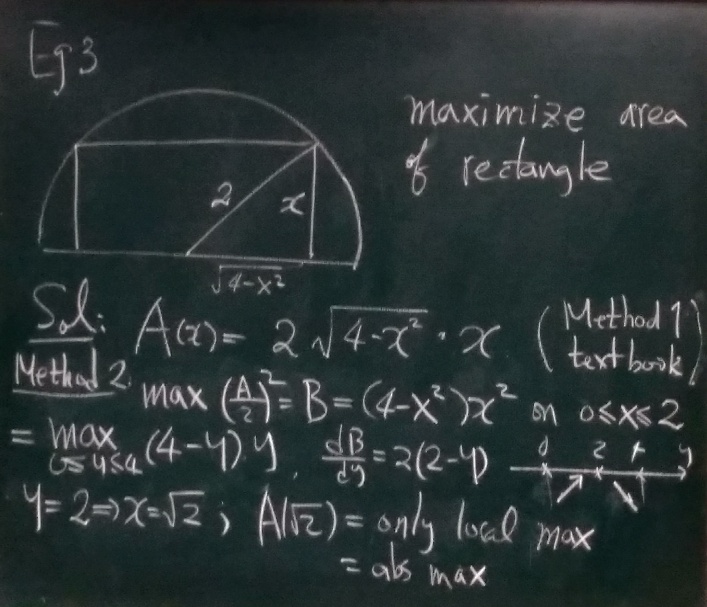 Eg 3
maximize area
of rectangle
2
x
√4-x²
Sol: A(x) = 2√4-x² · x (Method 1 textbook)
Method 2 max (A/2)² = B = (4-x²)x² on 0≤x≤2
= max 0≤y≤4 (4-y)y, dB/dy = 2(2-y) 0 2 4 y
y=2 ⇒ x=√2; A(√2) = only local max
= abs max